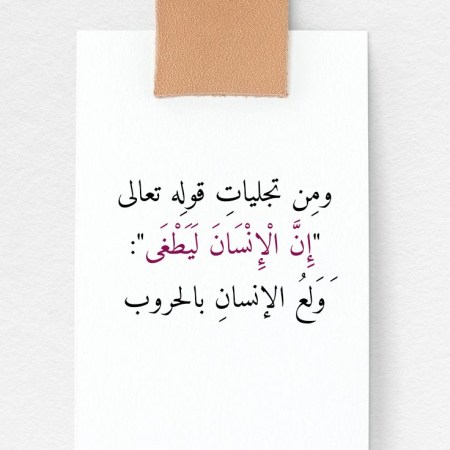 ومِن تجلياتِ قولِه تعالى
"إِنَّ الْإِنْسَانَ لَيَطْغَى":
وَلَعُ الإنسانِ بالحروب